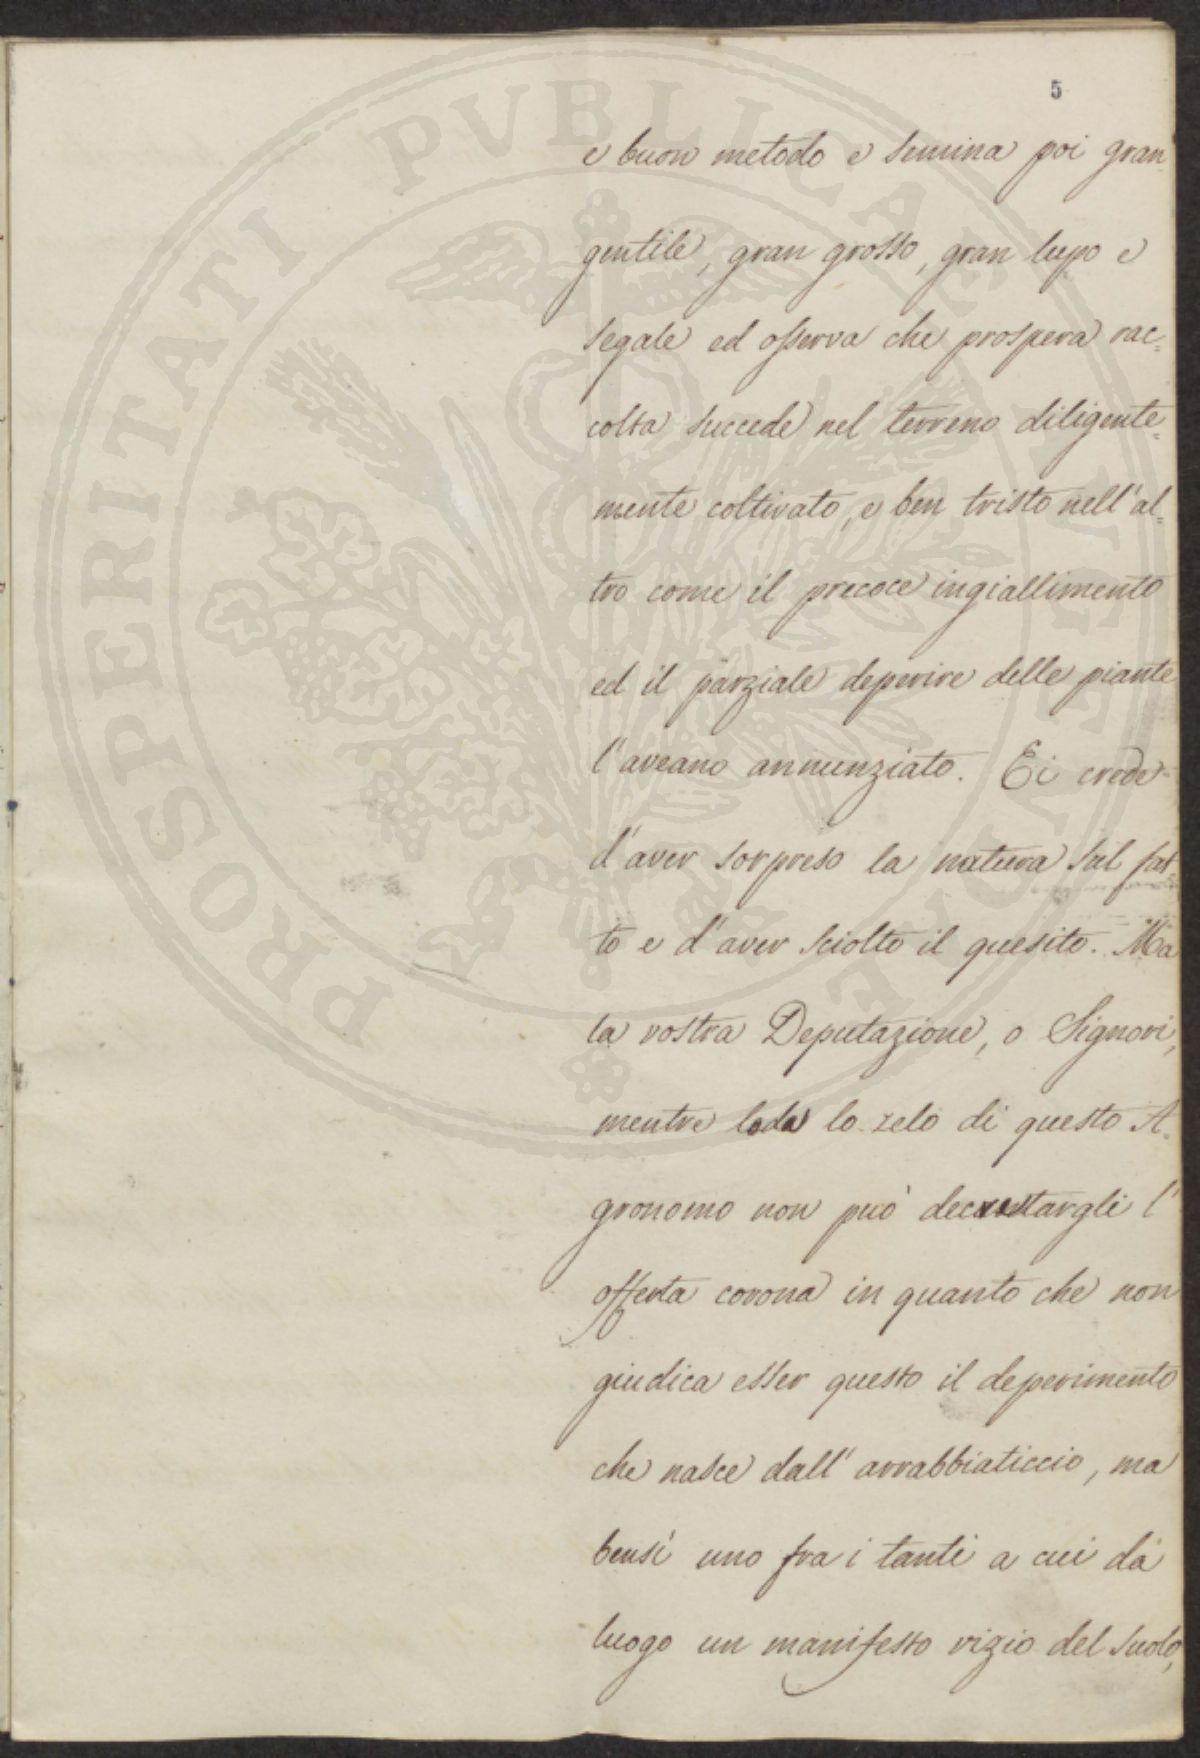 5
e buon metodo e semina poi gran
gentile, gran grosso, gran lupo e
segale ed osserva che prospera rac=
colta succede nel terreno diligente=
mente coltivato, e ben tristo nell'al=
tro come il precoce ingiallimento
ed il parziale deperire delle piante
l'aveano annunziato. Ei crede
d'aver sorpreso la natura sul fat=
to e d'aver sciolto il quesito. Ma
la vostra Deputazione, o Signori,
mentre loda lo zelo di questo A=
gronomo non può decretargli l'
offerta corona in quanto che non
giudica esser questo il deperimento
che nasce dall'arrabbiaticcio, ma
bensì uno fra i tanti a cui dà
luogo un manifesto vizio del suolo,
PROSPERITATI PVBLICAE AVGENDAE